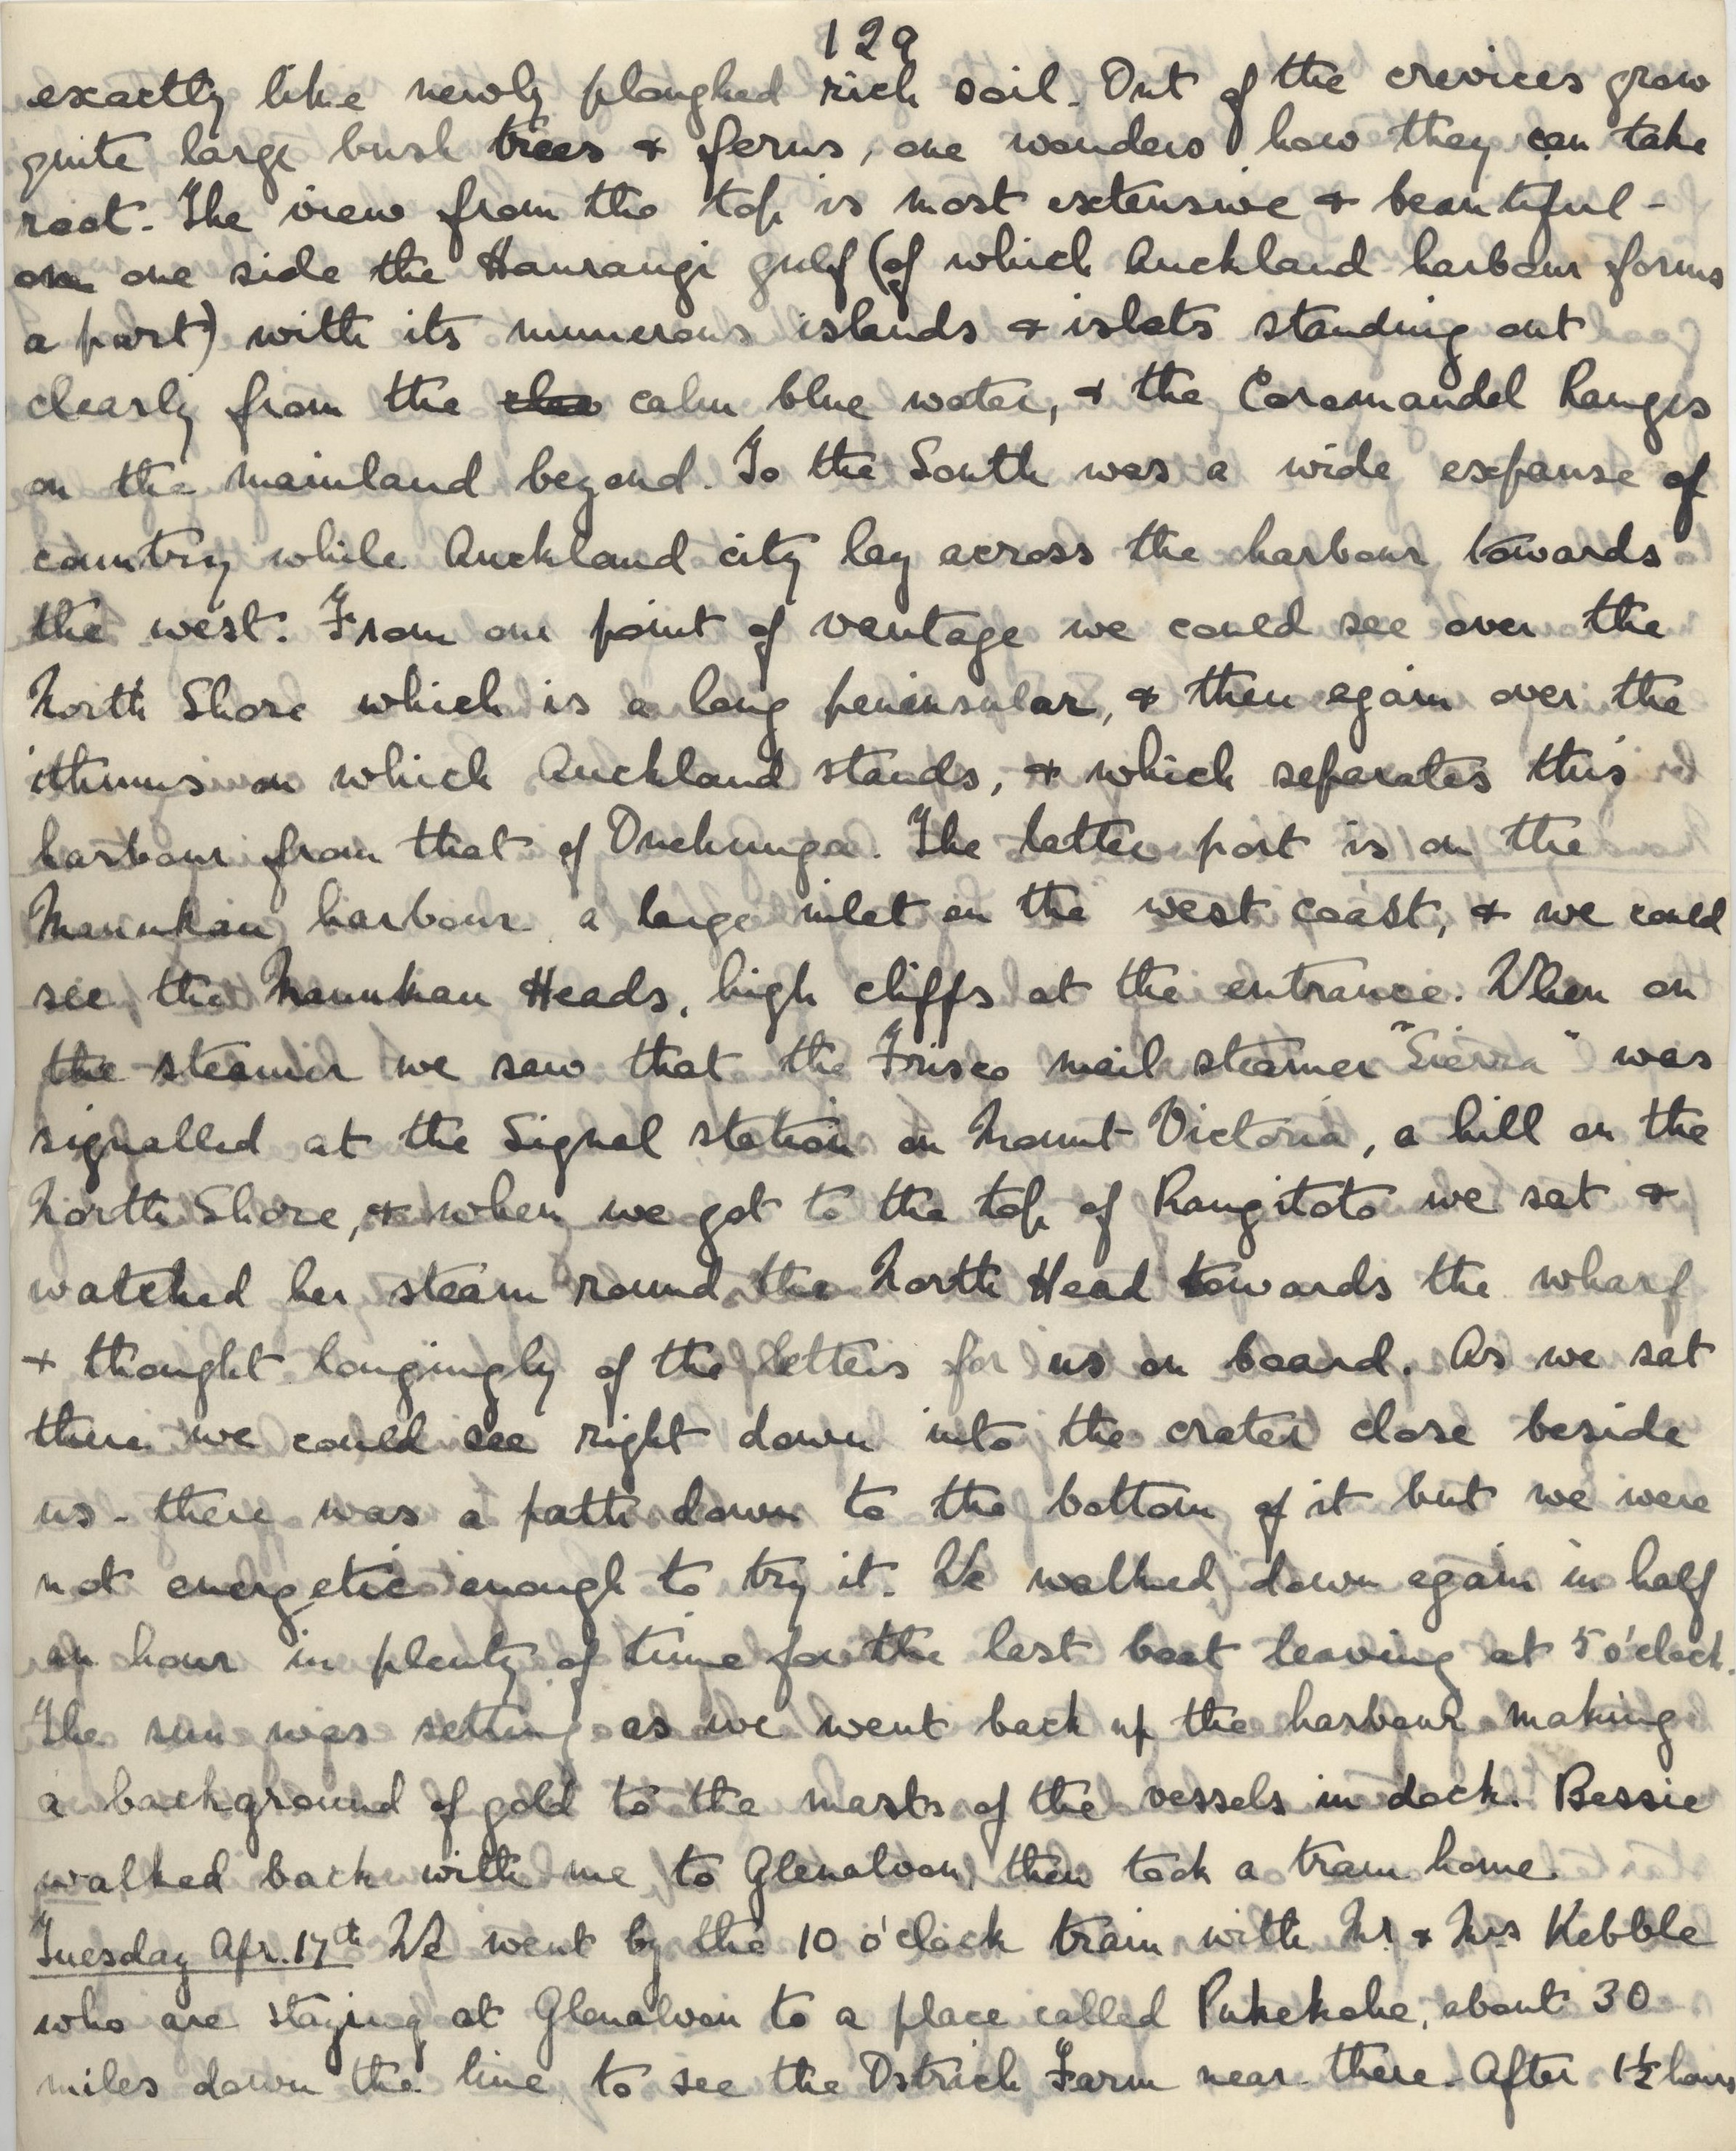 129
exactly like newly ploughed rich soil. Out of the crevices grow
quite large bush trees & ferns, one wonders how they can take
root. The view from the top is most extensive & beautiful -
on one side the Hauraugi gulf (of which Auckland harbour forms
a part) with its numerous islands & islets standing out
clearly from the clea calm blue water, & the Coromandel Ranges
on the mainland beyond. To the South was a wide expanse of
country while Auckland city lay across the harbour towards
the west. From our point of vantage we could see over the
North Shore which is a long peninsular, & then again over the
ithmus on which Auckland stands, & which separates this
harbour from that of Onehunga. The latter port is on the
Manukau harbour a large inlet on the west coast, & we could
see the Manukau Heads, high cliffs at the entrance. When on
the steamer we saw that the Frisco mail steamer "Sierra" was
signalled at the Signal station on Mount Victoria, a hill on the
North Shore, & when we got to the top of Rangitoto we sat &
watched her steam round the North Head towards the wharf
& thought longingly of the letters for us on board. As we sat
there we could see right down into the crater close beside
us - there was a path down to the bottom of it but we were
not energetic enough to try it. We walked down again in half
an hour in plenty of time for the last boat leaving at 5 o'clock.
The sun was setting as we went back up the harbour making
a background of gold to the masts of the vessels in dock. Bessie
walked back with me to Glenalvon, then took a tram home.
Tuesday Apr. 17th We went by the 10 o'clock train with Mr & Mrs Kebble
who are staying at Glenalvon to a place called Pukekohe, about 30
miles down the line to see the Ostrich Farm near there. After 1½ hours